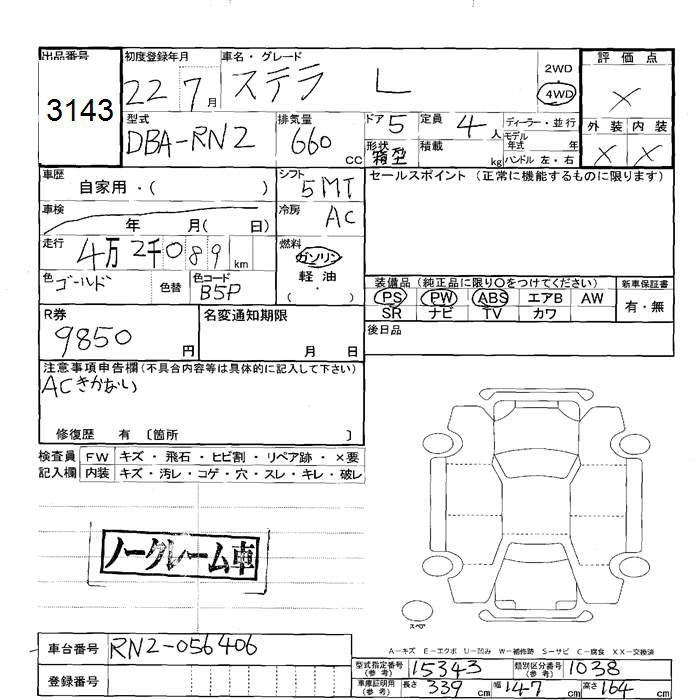 出品番号 初度登録年月 車名・グレード 評価点
3143 22 7月 ステラ L 2WD 4WD ×
型式 排気量 ドア 5 定員 4人 ディーラー・並行 外装 内装
DBA-RN2 660cc 形状 箱型 積載 kg モデル年式 年 × ×
ハンドル 左・右
車歴 自家用・( ) シフト 5MT セールスポイント (正常に機能するものに限ります)
車検 年 月( 日) 冷房 AC
走行 4万2千089km 燃料 ガソリン
軽油
( ・ )
色 ゴールド 色替 色コード B5P
装備品 (純正品に限り○をつけてください) 新車保証書
PS PW ABS エアB AW 有・無
SR ナビ TV カワ
R券 9850円 名変通知期限 月 日 後日品
注意事項申告欄(不具合内容等は具体的に記入して下さい)
ACきかない
修復歴 有 〔箇所 〕
検査員 FW キズ・飛石・ヒビ割・リペア跡・×要
記入欄 内装 キズ・汚レ・コゲ・穴・スレ・キレ・破レ
ノークレーム車
スペア
A-キズ E-エクボ U-凹み W-補修跡 S-サビ C-腐食 XX-交換済
車台番号 RN2-056406
登録番号
型式指定番号(参考) 15343 類別区分番号(参考) 1038
車庫証明用(参考) 長さ 339cm 幅 147cm 高さ 164cm